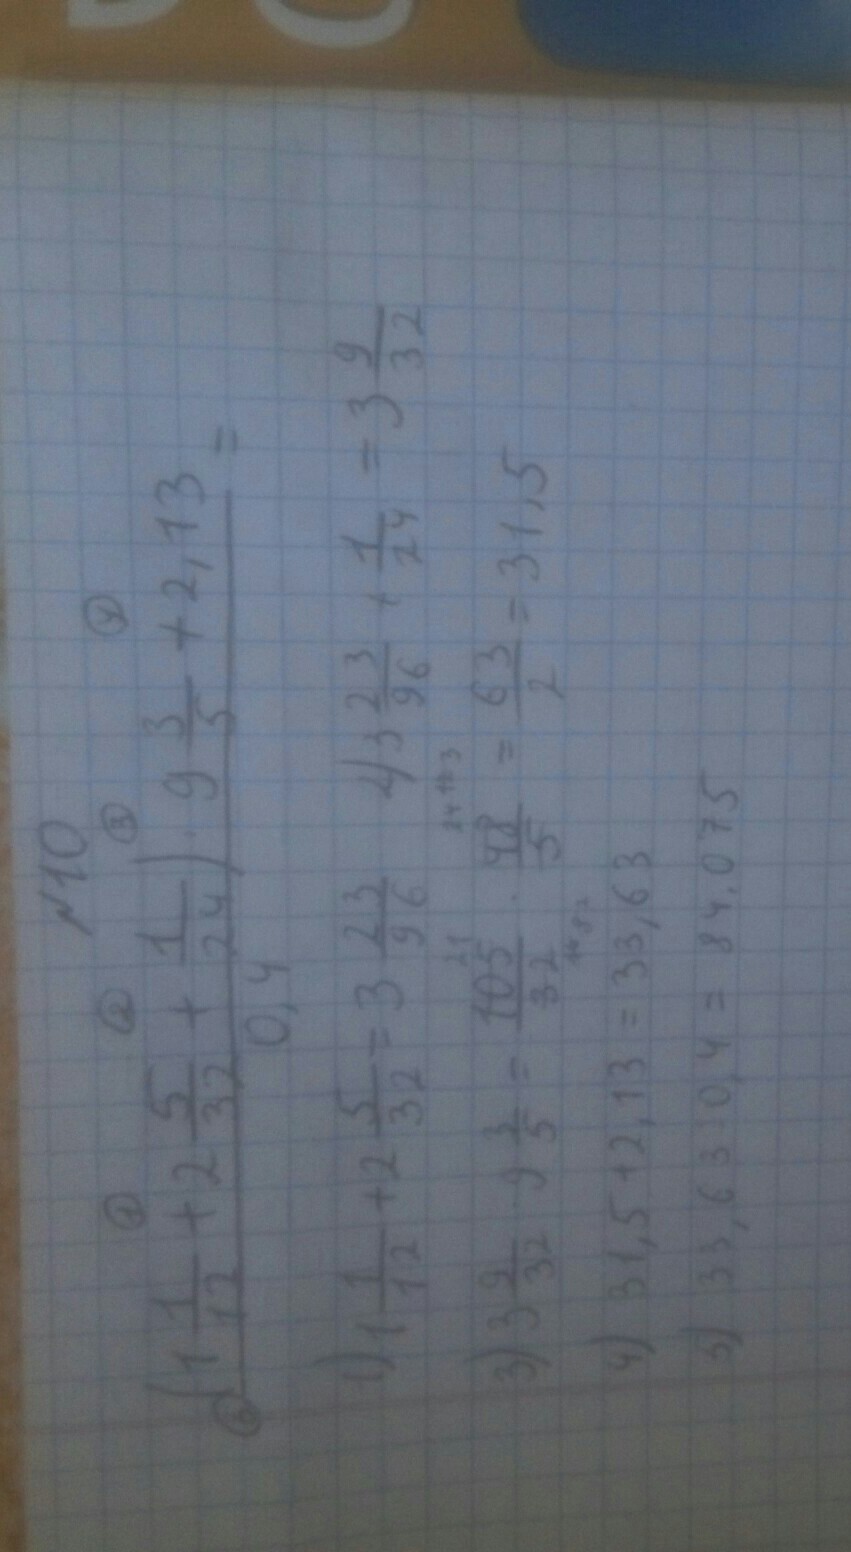 №10
① ② ③ ④
(1 1/12 + 2 5/32 + 1/24) · 9 3/5 + 2,13 =
⑤ 0,4
1) 1 1/12 + 2 5/32 = 3 23/96 2) 3 23/96 + 1/24 = 3 9/32
3) 3 9/32 · 9 3/5 = 105/32 · 48/5 = 63/2 = 31,5
4) 31,5 + 2,13 = 33,63
5) 33,63 : 0,4 = 84,075